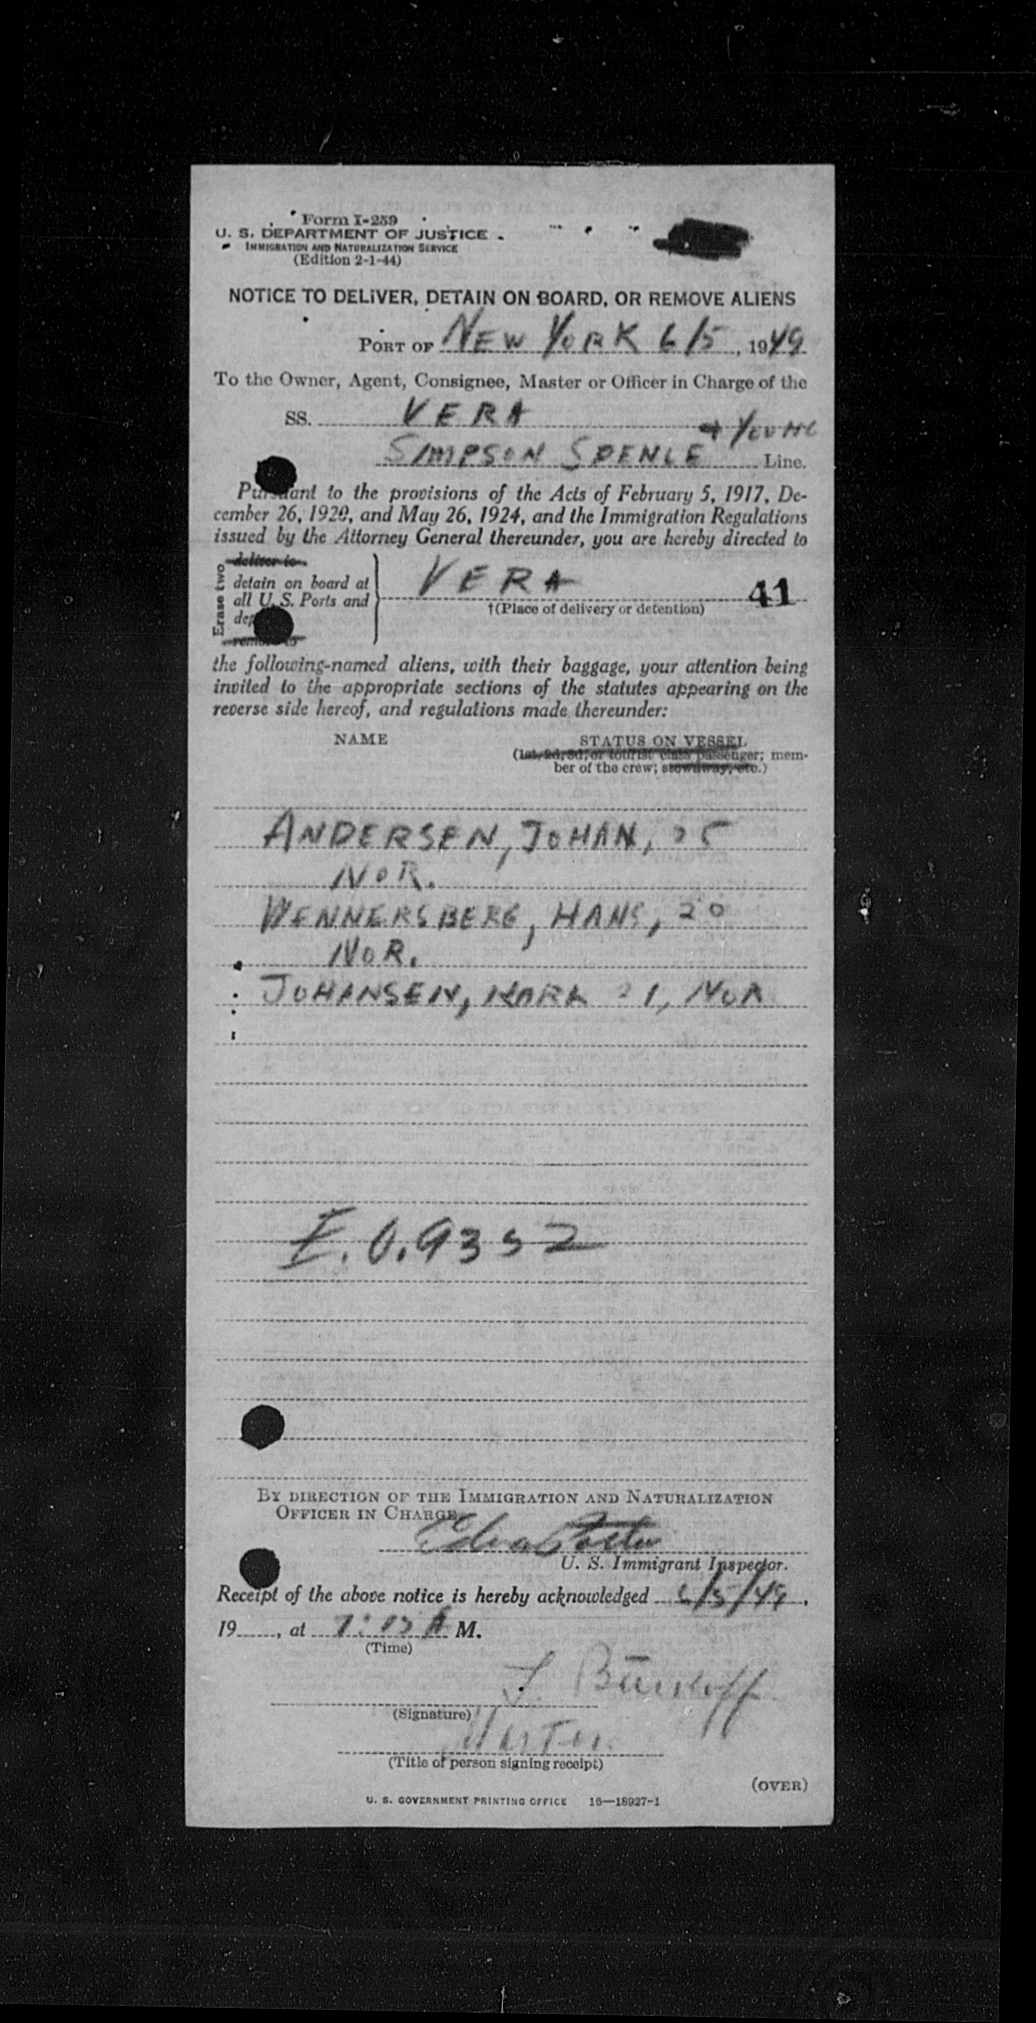 Form I-259
U. S. DEPARTMENT OF JUSTICE
IMMIGRATION AND NATURALIZATION SERVICE
(Edition 2-1-44)
NOTICE TO DELIVER, DETAIN ON BOARD, OR REMOVE ALIENS
PORT OF NEW YORK 6/5, 1949
To the Owner, Agent, Consignee, Master or Officer in Charge of the
SS. VERA
SIMPSON SPENCE + YOUNG Line.
Pursuant to the provisions of the Acts of February 5, 1917, De-
cember 26, 1920, and May 26, 1924, and the Immigration Regulations
issued by the Attorney General thereunder, you are hereby directed to
Erase two
deliver to
detain on board at
all U. S. Ports and
remove to
VERA 41
†(Place of delivery or detention)
the following-named aliens, with their baggage, your attention being
invited to the appropriate sections of the statutes appearing on the
reverse side hereof, and regulations made thereunder:
NAME STATUS ON VESSEL
(1st, 2d, 3d, or tourist class passenger; mem-
ber of the crew; stowaway, etc.)
ANDERSEN, JOHAN, 25
NOR.
WENNERSBERG, HANS, 20
NOR.
JOHANSEN, 21, NOR
E.O. 9352
BY DIRECTION OF THE IMMIGRATION AND NATURALIZATION
OFFICER IN CHARGE
U. S. Immigrant Inspector.
Receipt of the above notice is hereby acknowledged 6/5/49,
19____, at A M.
(Time)
(Signature)
Master
(Title of person signing receipt)
(OVER)
U. S. GOVERNMENT PRINTING OFFICE 16—18927-1